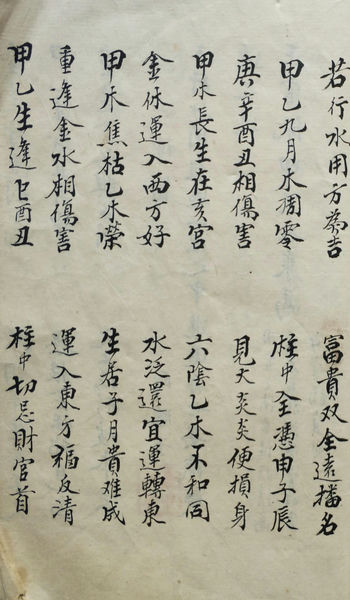 若行水用方為吉 富貴双全遠播名
甲乙九月木凋零 柱中全憑申子辰
庚辛酉丑相傷害 見火炎炎便損身
甲木長生在亥宮 六陰乙木不和同
金休運入西方好 水泛還宜運轉東
甲木焦枯乙木榮 生居子月貴难成
重逢金水相傷害 運入東方福反清
甲乙生逢巳酉丑 柱中切忌財官首